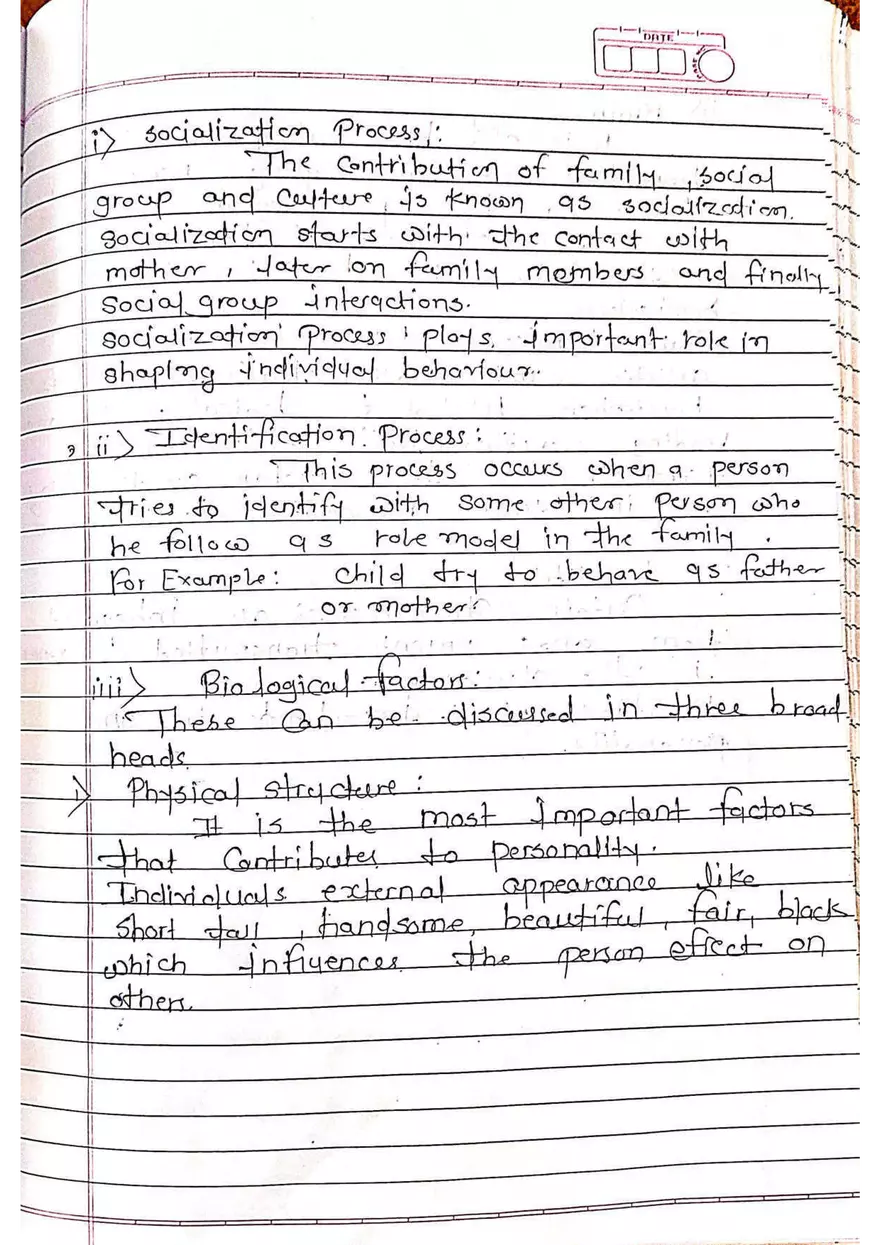 DATE
i) Socialization Process:
The contribution of family, social
group and culture, is known as socialization.
Socialization starts with the contact with
mother, later on family members and finally
social group interactions.
Socialization Process plays important role in
shaping individual behaviour.
ii) Identification Process:
This process occurs when a person
tries to identify with some other person who
he follow as role model in the family.
For Example: child try to behave as father
or mother.
iii) Biological factors:
These can be discussed in three broad
heads.
i) Physical structure:
It is the most important factors
that contributes to personality.
Individuals external appearance like
short tall, handsome, beautiful, fair, black
which influences the person effect on
others.